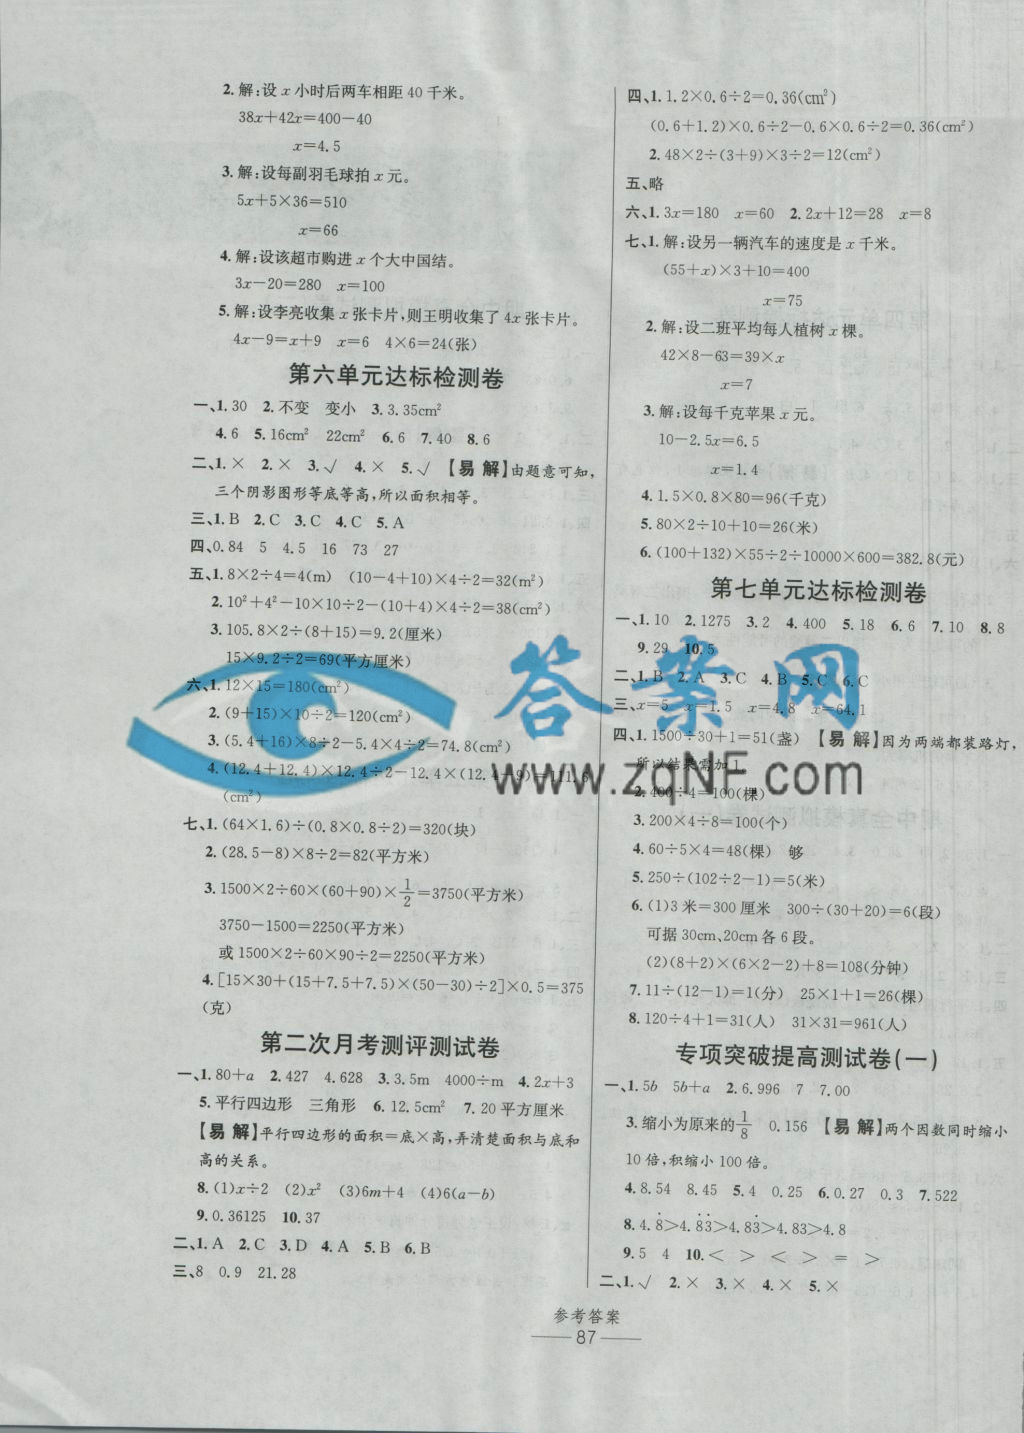 2. 解:设 x 小时后两车相距 40 千米。
38x+42x=400-40
x=4.5
3. 解:设每副羽毛球拍 x 元。
5x+5×36=510
x=66
4. 解:设该超市购进 x 个大中国结。
3x-20=280 x=100
5. 解:设李亮收集 x 张卡片,则王明收集了 4x 张卡片。
4x-9=x+9 x=6 4×6=24(张)
第六单元达标检测卷
一、1. 30 2. 不变 变小 3. 3.35cm²
4. 6 5. 16cm² 22cm² 6. 6 7. 40 8. 6
二、1. × 2. × 3. √ 4. × 5. √ 【易 解】由题意可知,
三个阴影图形等底等高,所以面积相等。
三、1. B 2. C 3. C 4. C 5. A
四、0.84 5 4.5 16 73 27
五、1. 8×2÷4=4(m) (10-4+10)×4÷2=32(m²)
2. 10²+4²-10×10÷2-(10+4)×4÷2=38(cm²)
3. 105.8×2÷(8+15)=9.2(厘米)
15×9.2÷2=69(平方厘米)
六、1. 12×15=180(cm²)
2. (9+15)×10÷2=120(cm²)
3. (5.4+16)×8÷2-5.4×4÷2=74.8(cm²)
4. (12.4+12.4)×12.4÷2-12.4×(12.4-9)=111.6
(cm²)
七、1. (64×1.6)÷(0.8×0.8÷2)=320(块)
2. (28.5-8)×8÷2=82(平方米)
3. 1500×2÷60×(60+90)×1/2=3750(平方米)
3750-1500=2250(平方米)
或 1500×2÷60×90÷2=2250(平方米)
4. [15×30+(15+7.5+7.5)×(50-30)÷2]×0.5=375
(克)
第二次月考测评测试卷
一、1. 80+a 2. 427 4.628 3. 3.5m 4000÷m 4. 2x+3
5. 平行四边形 三角形 6. 12.5cm² 7. 20 平方厘米
【易 解】平行四边形的面积=底×高,弄清楚面积与底和
高的关系。
8. (1)x÷2 (2)x² (3)6m+4 (4)6(a-b)
9. 0.36125 10. 37
二、1. A 2. C 3. D 4. A 5. B 6. B
三、8 0.9 21.28
四、1. 1.2×0.6÷2=0.36(cm²)
(0.6+1.2)×0.6÷2-0.6×0.6÷2=0.36(cm²)
2. 48×2÷(3+9)×3÷2=12(cm²)
五、略
六、1. 3x=180 x=60 2. 2x+12=28 x=8
七、1. 解:设另一辆汽车的速度是 x 千米。
(55+x)×3+10=400
x=75
2. 解:设二班平均每人植树 x 棵。
42×8-63=39×x
x=7
3. 解:设每千克苹果 x 元。
10-2.5x=6.5
x=1.4
4. 1.5×0.8×80=96(千克)
5. 80×2÷10+10=26(米)
6. (100+132)×55÷2÷10000×600=382.8(元)
第七单元达标检测卷
一、1. 10 2. 1275 3. 2 4. 400 5. 18 6. 6 7. 10 8. 8
9. 29 10. 5
二、1. B 2. A 3. C 4. B 5. C 6. C
三、x=5 x=1.5 x=4.8 x=64.1
四、1. 1500÷30+1=51(盏) 【易 解】因为两端都装路灯,
所以结果需加 1。
2. 400÷4=100(棵)
3. 200×4÷8=100(个)
4. 60÷5×4=48(棵) 够
5. 250÷(102÷2-1)=5(米)
6. (1)3 米=300 厘米 300÷(30+20)=6(段)
可据 30cm、20cm 各 6 段。
(2)(8+2)×(6×2-2)+8=108(分钟)
7. 11÷(12-1)=1(分) 25×1+1=26(棵)
8. 120÷4+1=31(人) 31×31=961(人)
专项突破提高测试卷(一)
一、1. 5b 5b+a 2. 6.996 7 7.00
3. 缩小为原来的1/8 0.156 【易 解】两个因数同时缩小
10 倍,积缩小 100 倍。
4. 8.54 8.45 5. 4 0.25 6. 0.27 0.3 7. 522
8. 4.8̇>4.8̇3̇>4.83̇>4.83>4.8
9. 5 4 10. < > < > = >
二、1. √ 2. × 3. × 4. × 5. ×
参考答案
87
答案网
www.zqNF.com